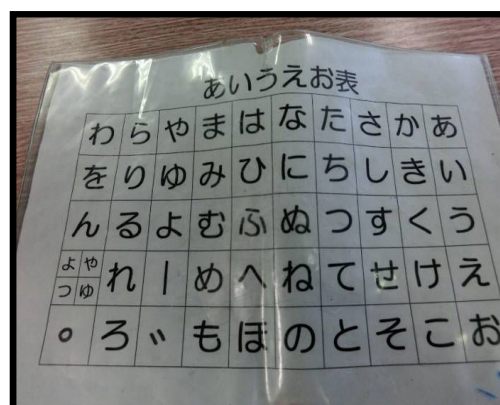 あいうえお表
わ ら や ま は な た さ か あ
を り ゆ み ひ に ち し き い
ん る よ む ふ ぬ つ す く う
よ や つ ゆ れ ー め へ ね て せ け え
。 ろ 〃 も ほ の と そ こ お